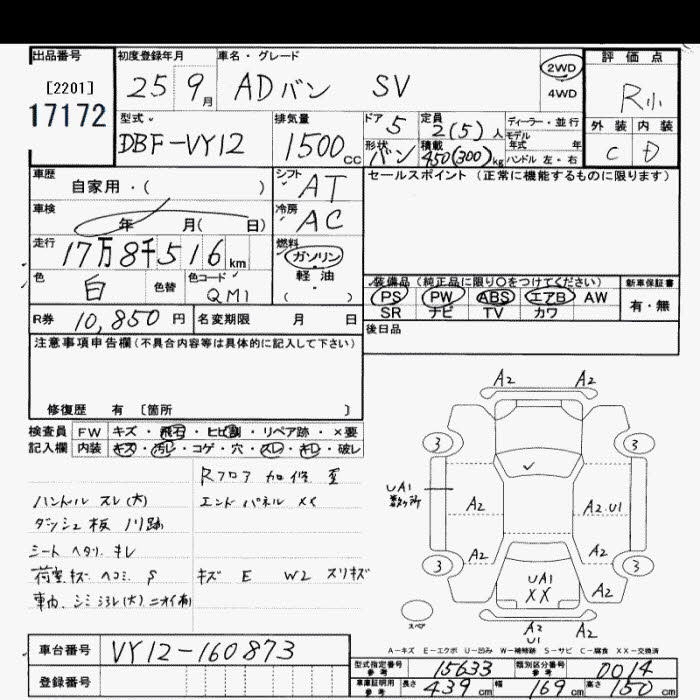 出品番号 初度登録年月 車名・グレード 評価点
[2201] 25 9月 ADバン SV 2WD R小
17172 4WD
型式 排気量 ドア 5 定員 2(5)人 ディーラー・並行 外装 内装
DBF-VY12 1500cc 形状 バン 積載 450(300)kg モデル年式 年 C D
ハンドル 左・右
車歴 自家用・( ) シフト AT セールスポイント (正常に機能するものに限ります)
車検 年 月( 日) 冷房 AC
走行 17万8千516km 燃料 ガソリン
軽油
( )
色 白 色替 色コード QM1 装備品 (純正品に限り○をつけてください) 新車保証書
PS PW ABS エアB AW 有・無
SR ナビ TV カワ
R券 10,850円 名変期限 月 日 後日品
注意事項申告欄(不具合内容等は具体的に記入して下さい)
修復歴 有 〔箇所 〕
検査員 FW キズ・飛石・ヒビ割・リペア跡・×要
記入欄 内装 キズ・汚レ・コゲ・穴・スレ・キレ・破レ
Rフロア加修
ハンドル スレ(大) エンドパネル XX
ダッシュ板 ノリ跡
シート ヘタリ キレ
荷室 キズ ヘコミ S キズ E W2 スリキズ
車内 シミ ヨゴレ(大) ニオイ有
A2 A2
3 3
UA1 数ヶ所 A2 A2.U1
A2 A2
3 3
UA1 A2
XX
スペア A2 A2
U1
A-キズ E-エクボ U-凹み W-補修跡 S-サビ C-腐食 XX-交換済
車台番号 VY12-160873
登録番号
型式指定番号 参考 15633 類別区分番号 参考 0014
車庫証明用 参考 長さ 439cm 幅 169cm 高さ 150cm